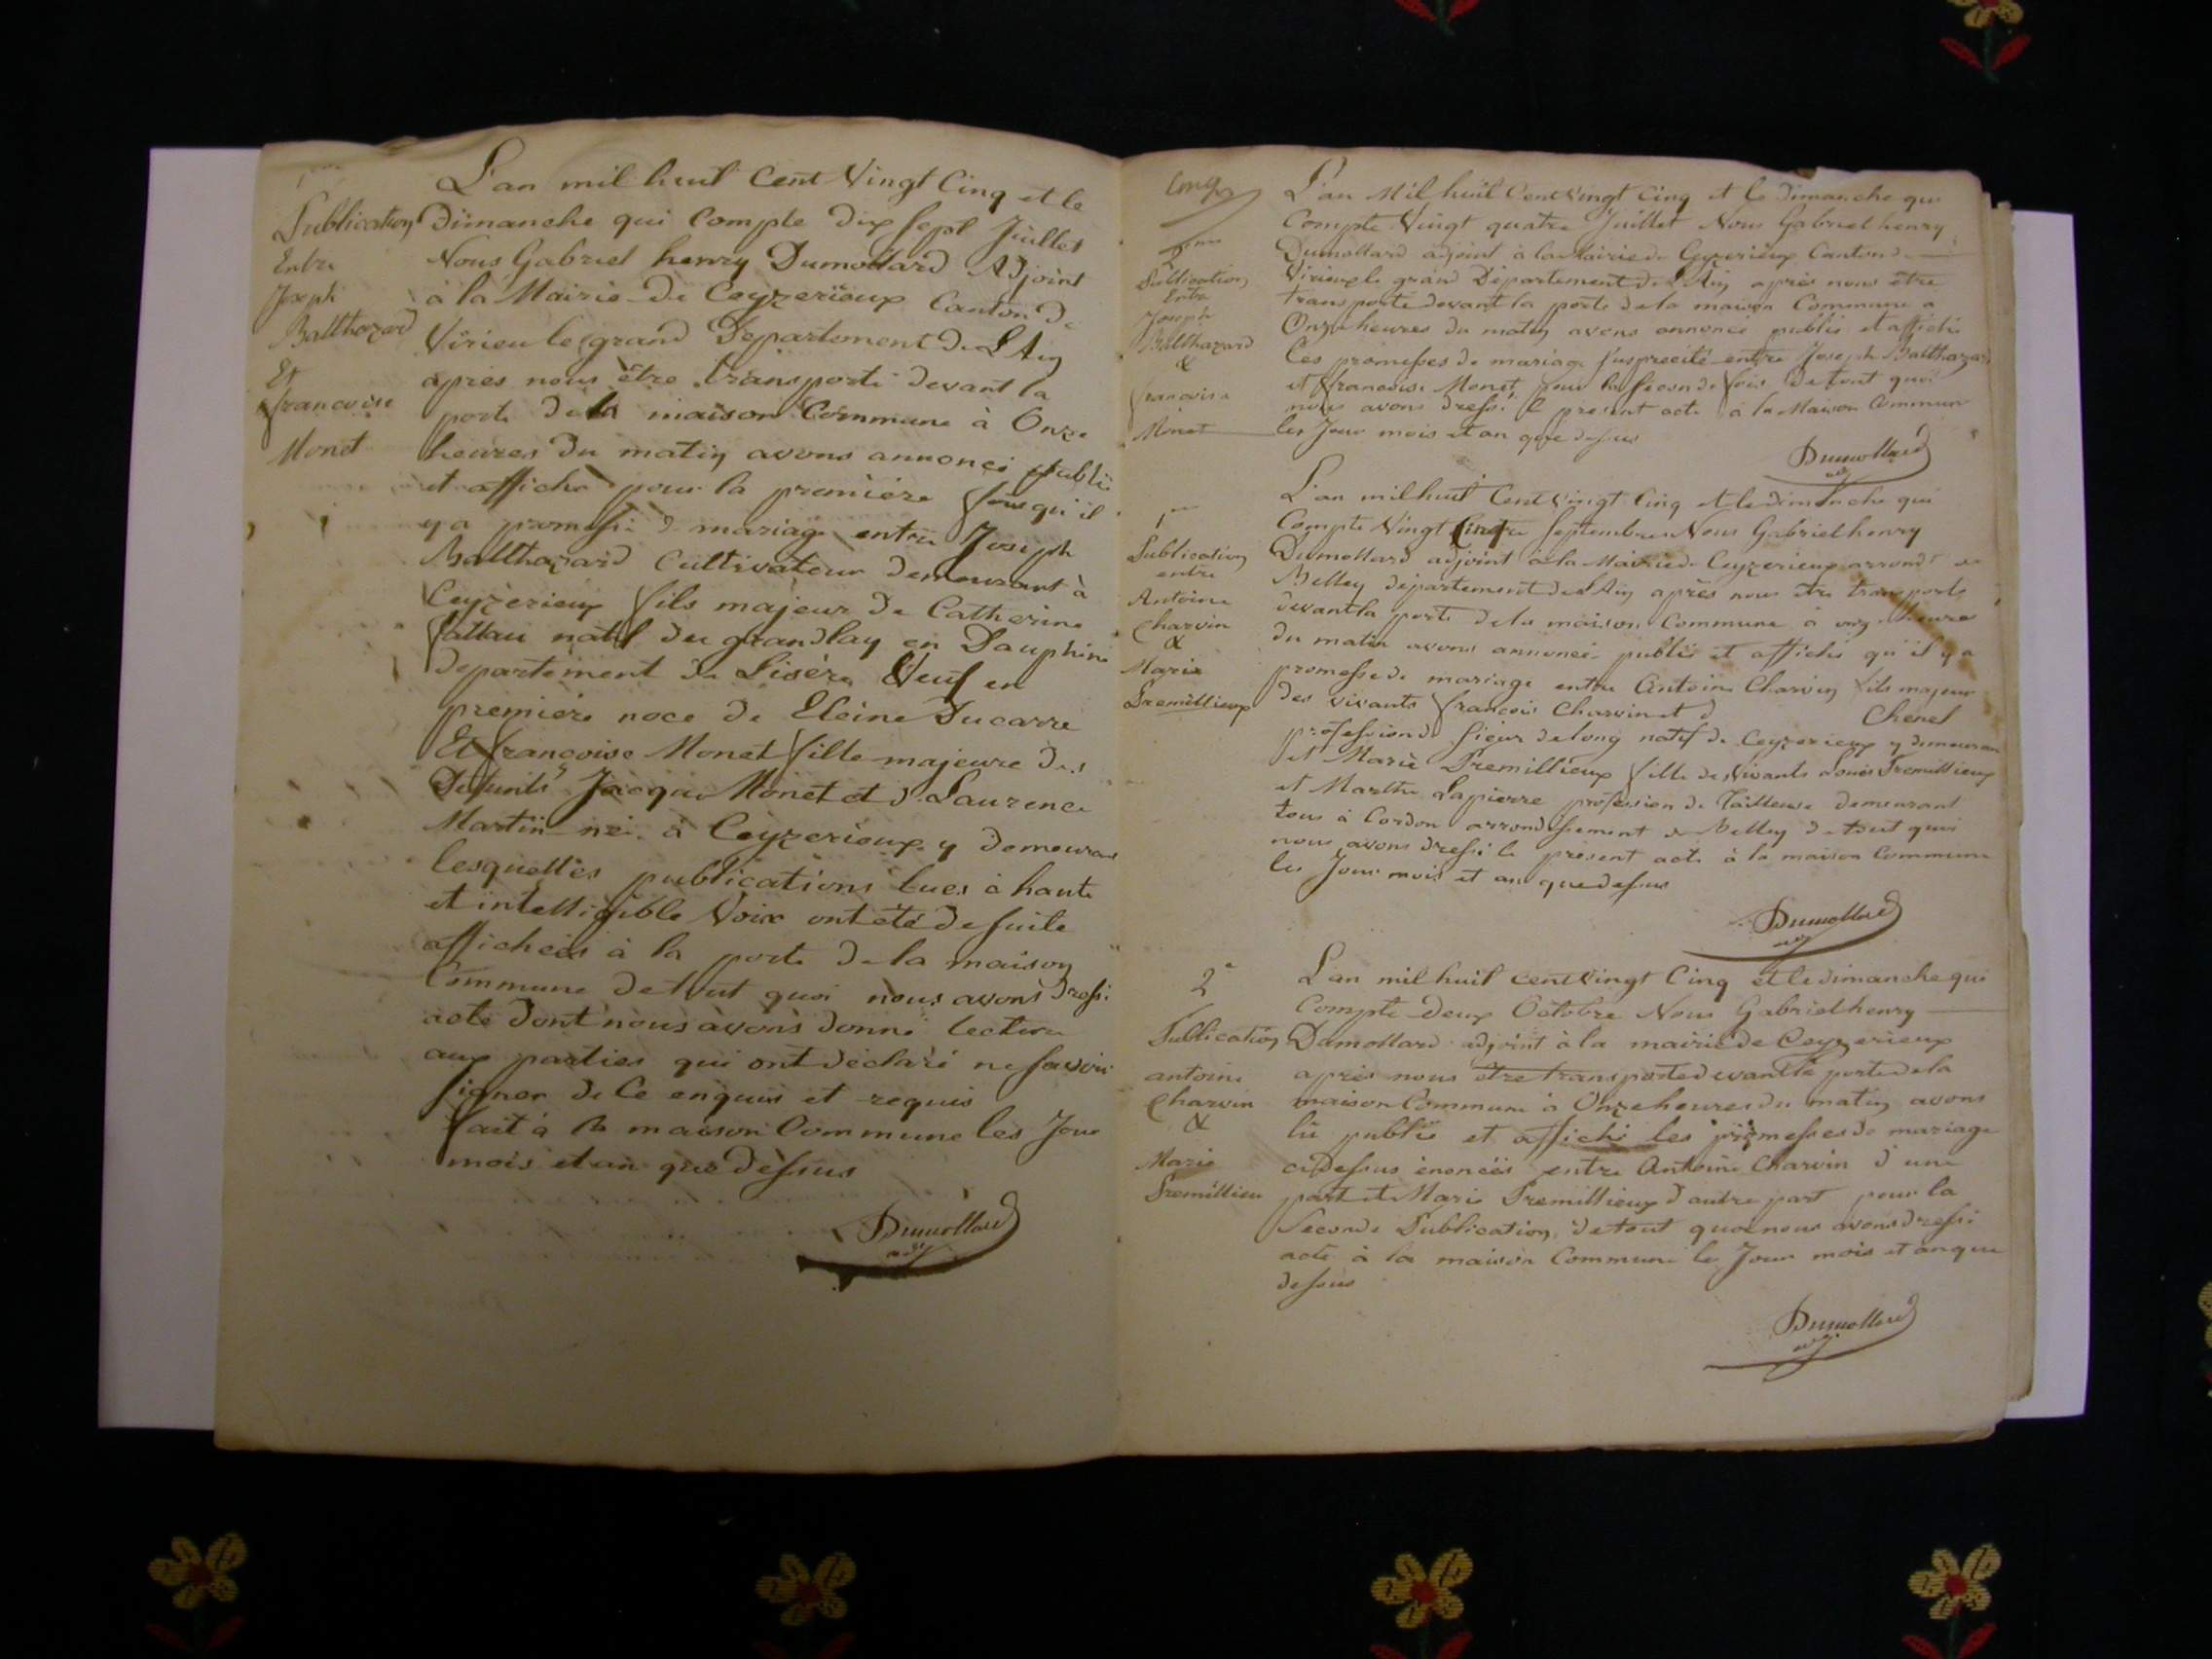 1ere
Publication
Entre
Joseph
Balthazard
Et
francoise
Monet
L'an mil huit Cent Vingt Cinq et le
Dimanche qui Compte Dix sept Juillet
Nous Gabriel henry Dumollard Adjoint
à la Mairie De Ceyzerieux Canton De
Virieu le grand Departement De L'Ain
après nous être transporté devant la
porte De la maison Commune à Onze
heures Du matin avons annoncé publié
et affiché pour la première fois qu'il
y a promesse de mariage entre Joseph
Balthazard Cultivateur Demeurant à
Ceyzerieux fils majeur De Catherine
natif du en Dauphiné
departement De Lisère Veuf en
première noce De Eleine Ducarre
Et francoise Monet fille majeure Des
Defunts Jacque Monet et d Laurence
Martin née à Ceyzerieux y demeurant
lesquelles publications lues à haute
et intelligible Voix ont été De suite
affichées à la porte De la maison
Commune De tout quoi nous avons Dressé
acte Dont nous avons donné lecture
aux parties qui ont déclaré ne savoir
signer de Ce enquis et requis
fait à la maison Commune les Jour
mois et an que dessus
Dumollard
adj
Cinq
2eme
Publication
Entre
Joseph
Balthazard
&
francoise
Monet
L'an Mil huit Cent Vingt Cinq et le Dimanche qui
Compte Vingt quatre Juillet Nous Gabriel henry
Dumollard adjoint à la Mairie de Ceyzerieux Canton De
Virieux le grand Département De L'Ain après nous être
transporté devant la porte De la maison Commune a
Onze heures Du matin avons annoncé publié et affiché
les promesses de mariage susprecité entre Joseph Balthazard
et francoise Monet pour la seconde fois De tout quoi
nous avons Dressé le present acte à la Maison Commune
les Jour mois et an que dessus
Dumollard
adj
1ere
Publication
entre
Antoine
Charvin
&
Marie
Premillieux
L'an mil huit Cent Vingt Cinq et le dimanche qui
Compte Vingt Cinq Septembre Nous Gabriel henry
Dumollard adjoint à la Mairie de Ceyzerieux arrondt de
Belley département De L'Ain après nous être transporté
devant la porte De la maison Commune à onze heures
du matin avons annoncé publié et affiché qu'il y a
promesse de mariage entre Antoine Charvin fils majeur
des vivants francois Charvin et d Chenel
profession de natif de Ceyzerieux y demeurant
et Marie Premillieux fille des Vivants Louis Premillieux
et Marthe Lapierre profession de Tailleuse Demeurant
tous à Cordon arrondissement de Belley De tout quoi
nous avons dressé le présent acte à la maison Commune
les Jour mois et an que dessus
Dumollard
adj
2e
Publication
antoine
Charvin
&
Marie
Premillieu
L'an mil huit cent Vingt Cinq et le dimanche qui
Compte Deux Octobre Nous Gabriel henry
Dumollard adjoint à la mairie de Ceyzerieux
après nous être transporté devant la porte de la
maison Commune à Onze heures du matin avons
lû publié et affiché les promesses de mariage
cidessus énoncées entre Antoine Charvin d'une
part et Marie Premillieux d'autre part pour la
Seconde Publication, de tout quoi nous avons dressé
acte à la maison Commune le Jour mois et an que
dessus
Dumollard
adj